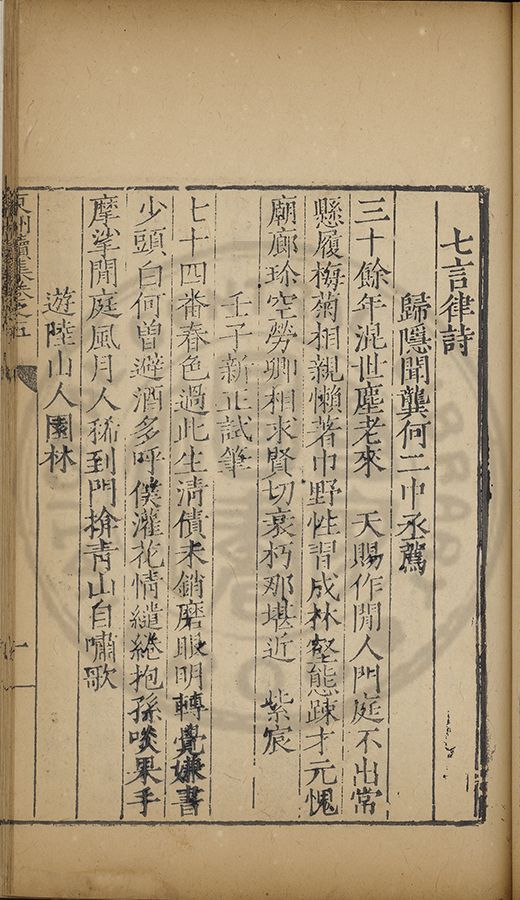 七言律詩
歸隱聞龔何二中丞薦
三十餘年混世塵老來　天賜作閒人門庭不出常
懸履梅菊相親懶著巾野性習成林壑態踈才元愧
廟廊珍空勞卿相求賢切衰朽那堪近　紫宸
壬子新正試筆
七十四番春色過此生清債未銷磨眼明轉覺嫌書
少頭白何曾避酒多呼僕灌花情繾綣抱孫啖果手
摩挲閒庭風月人稀到門掩青山自嘯歌
遊陸山人園林
續集卷之五
一